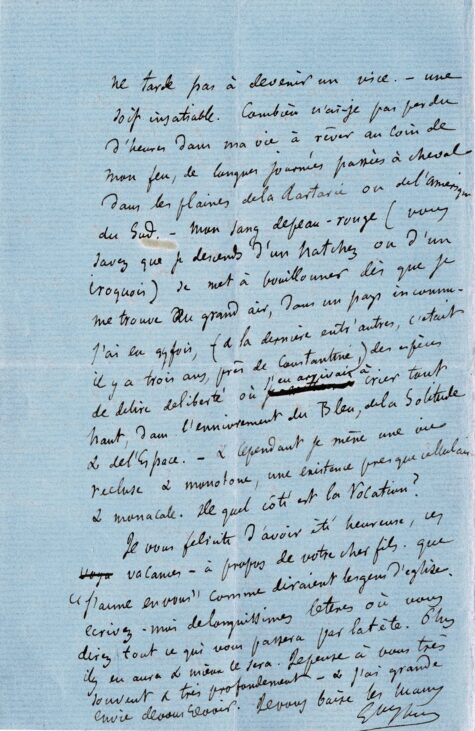 ne tarde pas à devenir un vice. – une
soif insatiable. Combien n'ai-je pas perdu
d'heures dans ma vie à rêver au coin de
mon feu, de longues journées passées à cheval
dans les plaines de la Tartarie ou de l'Amérique
du Sud. – Mon sang de peau-rouge (vous
savez que je descends d'un Natchez ou d'un
iroquois) se met à bouillonner dès que je
me trouve au grand air, dans un pays inconnu.
J'ai eu qqfois, (& la dernière entr'autres, c'était
il y a trois ans, près de Constantine,) des espèces
de délire de liberté où j'en arrivais à crier tout
haut, dans l'enivrement du Bleu, de la Solitude
& de l'Espace. – & Cependant je mène une vie
recluse & monotone, une existence presque cellulaire
& monacale. De quel côté est la Vocation?
Je vous felicite d'avoir été heureuse, ces
vacances – à propos de votre cher fils. que
« j'aime en vous » comme diraient les gens d'église.
ecrivez-moi de longuissimes lettres où vous
direz tout ce qui vous passera par la tête. Plus
il y en aura & mieux ce sera. Je pense à vous très
souvent & très profondement – & j'ai grande
envie de vous revoir. Je vous baise les mains